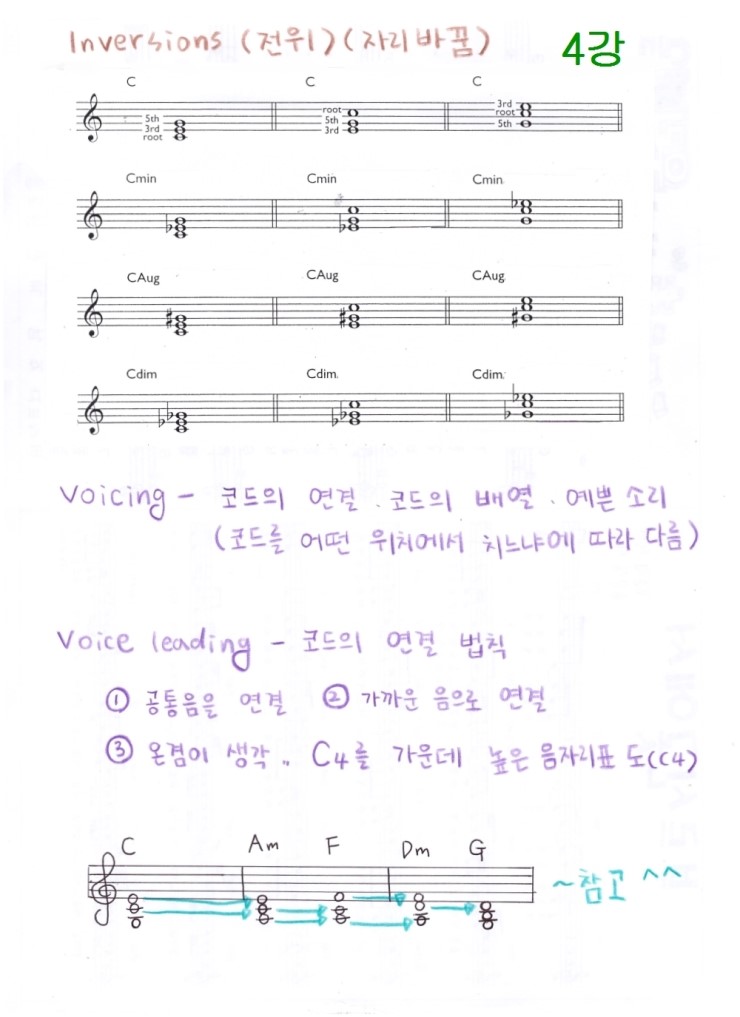 Inversions (전위) (자리바꿈) 4강
C C C
5th 3rd root root 5th 3rd 3rd root 5th
Cmin Cmin Cmin
CAug CAug CAug
Cdim Cdim. Cdim.
Voicing - 코드의 연결 . 코드의 배열 . 예쁜 소리
(코드를 어떤 위치에서 치느냐에 따라 다름)
Voice leading - 코드의 연결 법칙
① 공통음을 연결 ② 가까운 음으로 연결
③ 온겹이 생각.. C4를 가운데 높은 음자리표 도(C4)
C Am F Dm G
~참고 ^^